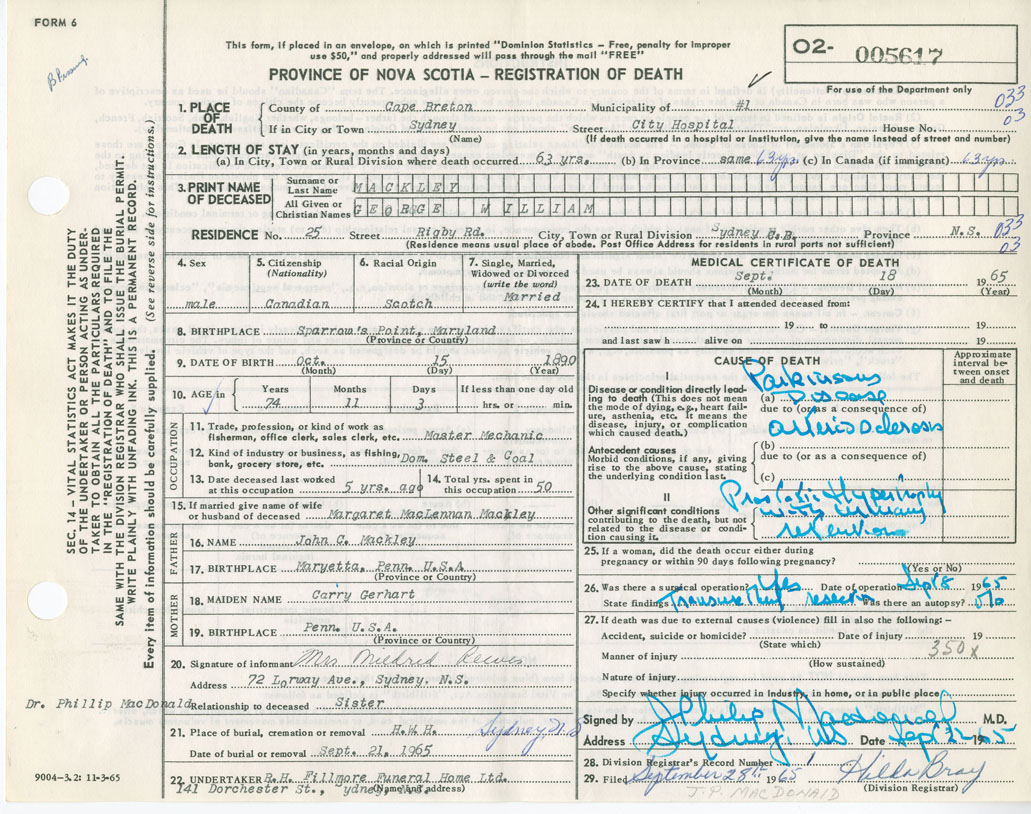 FORM 6
This form, if placed in an envelope, on which is printed "Dominion Statistics – Free, penalty for improper
use $50," and properly addressed will pass through the mail "FREE"
PROVINCE OF NOVA SCOTIA – REGISTRATION OF DEATH
02- 005617
For use of the Department only
033
03
1. PLACE OF DEATH
County of Cape Breton Municipality of #1
If in City or Town Sydney Street City Hospital House No.
(Name) (If death occurred in a hospital or institution, give the name instead of street and number)
2. LENGTH OF STAY (in years, months and days)
(a) In City, Town or Rural Division where death occurred 63 yrs. (b) In Province same 63 yrs (c) In Canada (if immigrant) 63 yrs
3. PRINT NAME OF DECEASED
Surname or Last Name MACKLEY
All Given or Christian Names GEORGE WILLIAM
RESIDENCE No. 25 Street Rigby Rd. City, Town or Rural Division Sydney C.B. Province N.S. 033
(Residence means usual place of abode. Post Office Address for residents in rural parts not sufficient) 03
4. Sex
male
5. Citizenship (Nationality)
Canadian
6. Racial Origin
Scotch
7. Single, Married, Widowed or Divorced (write the word)
Married
8. BIRTHPLACE Sparrow's Point, Maryland
(Province or Country)
9. DATE OF BIRTH Oct. 15 1890
(Month) (Day) (Year)
10. AGE in Years Months Days If less than one day old
74 11 3 hrs. or min.
OCCUPATION
11. Trade, profession, or kind of work as
fisherman, office clerk, sales clerk, etc. Master Mechanic
12. Kind of industry or business, as fishing,
bank, grocery store, etc. Dom. Steel & Coal
13. Date deceased last worked
at this occupation 5 yrs. ago
14. Total yrs. spent in
this occupation 50
15. If married give name of wife
or husband of deceased Margaret MacLennan Mackley
FATHER
16. NAME John C. Mackley
17. BIRTHPLACE Maryetta, Penn. U.S.A
(Province or Country)
MOTHER
18. MAIDEN NAME Carry Gerhart
19. BIRTHPLACE Penn. U.S.A.
(Province or Country)
20. Signature of informant Mrs Mildred Reeves
Address 72 Lorway Ave., Sydney. N.S.
Dr. Phillip MacDonald
Relationship to deceased Sister
21. Place of burial, cremation or removal H.W.H. Sydney, N.S
Date of burial or removal Sept. 21. 1965
22. UNDERTAKER R.H. Fillmore Funeral Home Ltd.
141 Dorchester St., ydney, N.S.
(Name and address)
9004–3.2: 11-3-65
SEC. 14. VITAL STATISTICS ACT MAKES IT THE DUTY
OF THE UNDERTAKER OR PERSON ACTING AS UNDER-
TAKER TO OBTAIN ALL THE PARTICULARS REQUIRED
IN THE "REGISTRATION OF DEATH" AND TO FILE THE
SAME WITH THE DIVISION REGISTRAR WHO SHALL ISSUE THE BURIAL PERMIT.
WRITE PLAINLY WITH UNFADING INK. THIS IS A PERMANENT RECORD.
Every item of information should be carefully supplied. (See reverse side for instructions.)
MEDICAL CERTIFICATE OF DEATH
23. DATE OF DEATH Sept. 18 1965
(Month) (Day) (Year)
24. I HEREBY CERTIFY that I attended deceased from:
19 to 19
and last saw h alive on 19
CAUSE OF DEATH
Approximate interval between onset and death
I
Disease or condition directly leading
to death (This does not mean
the mode of dying, e.g., heart failure,
asthenia, etc. It means the
disease, injury, or complication
which caused death.)
(a) Parkinsons Disease
due to (or as a consequence of)
arteriosclerosis
Antecedent causes
Morbid conditions, if any, giving
rise to the above cause, stating
the underlying condition last.
(b)
due to (or as a consequence of)
(c)
II
Other significant conditions
contributing to the death, but not
related to the disease or condition
causing it.
Prostatic Hypertrophy
with urinary
retention
25. If a woman, did the death occur either during
pregnancy or within 90 days following pregnancy?
(Yes or No)
26. Was there a surgical operation? Yes Date of operation Sept 8 1965
State findings Transurethral resection Was there an autopsy? No
27. If death was due to external causes (violence) fill in also the following:–
Accident, suicide or homicide? Date of injury 19
(State which)
Manner of injury 350x
(How sustained)
Nature of injury
Specify whether injury occurred in industry, in home, or in public place
Signed by J Philip Macdonald M.D.
Address Sydney, NS Date Sep 22 1965
28. Division Registrar's Record Number
29. Filed September 28th 1965 Hilda Bray
(Division Registrar)
J.P. MACDONALD